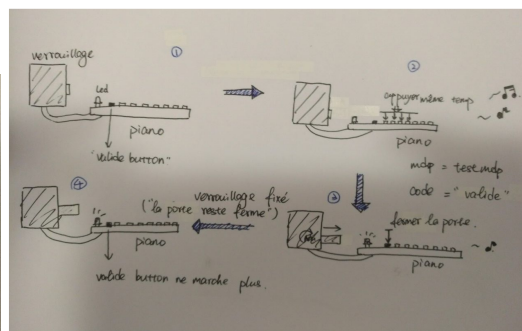 ①
verrouillage
led
piano
"valide button"
②
appuyer même temp
piano
mdp = test.mdp
code = "valide"
③
fermer la porte.
piano
④
verrouillage fixé
("la porte reste fermé")
piano
valide button ne marche plus.